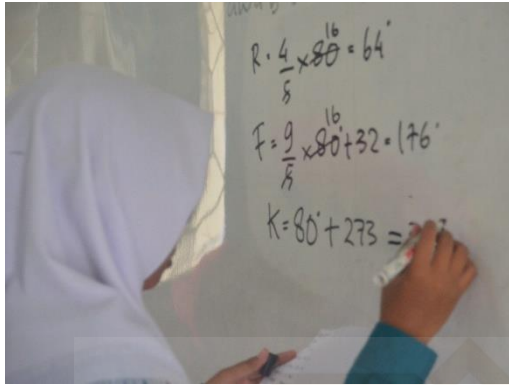 R = 4/5 × 80 16 = 64°
F = 9/5 × 80° 16 + 32 = 176°
K = 80° + 273 =